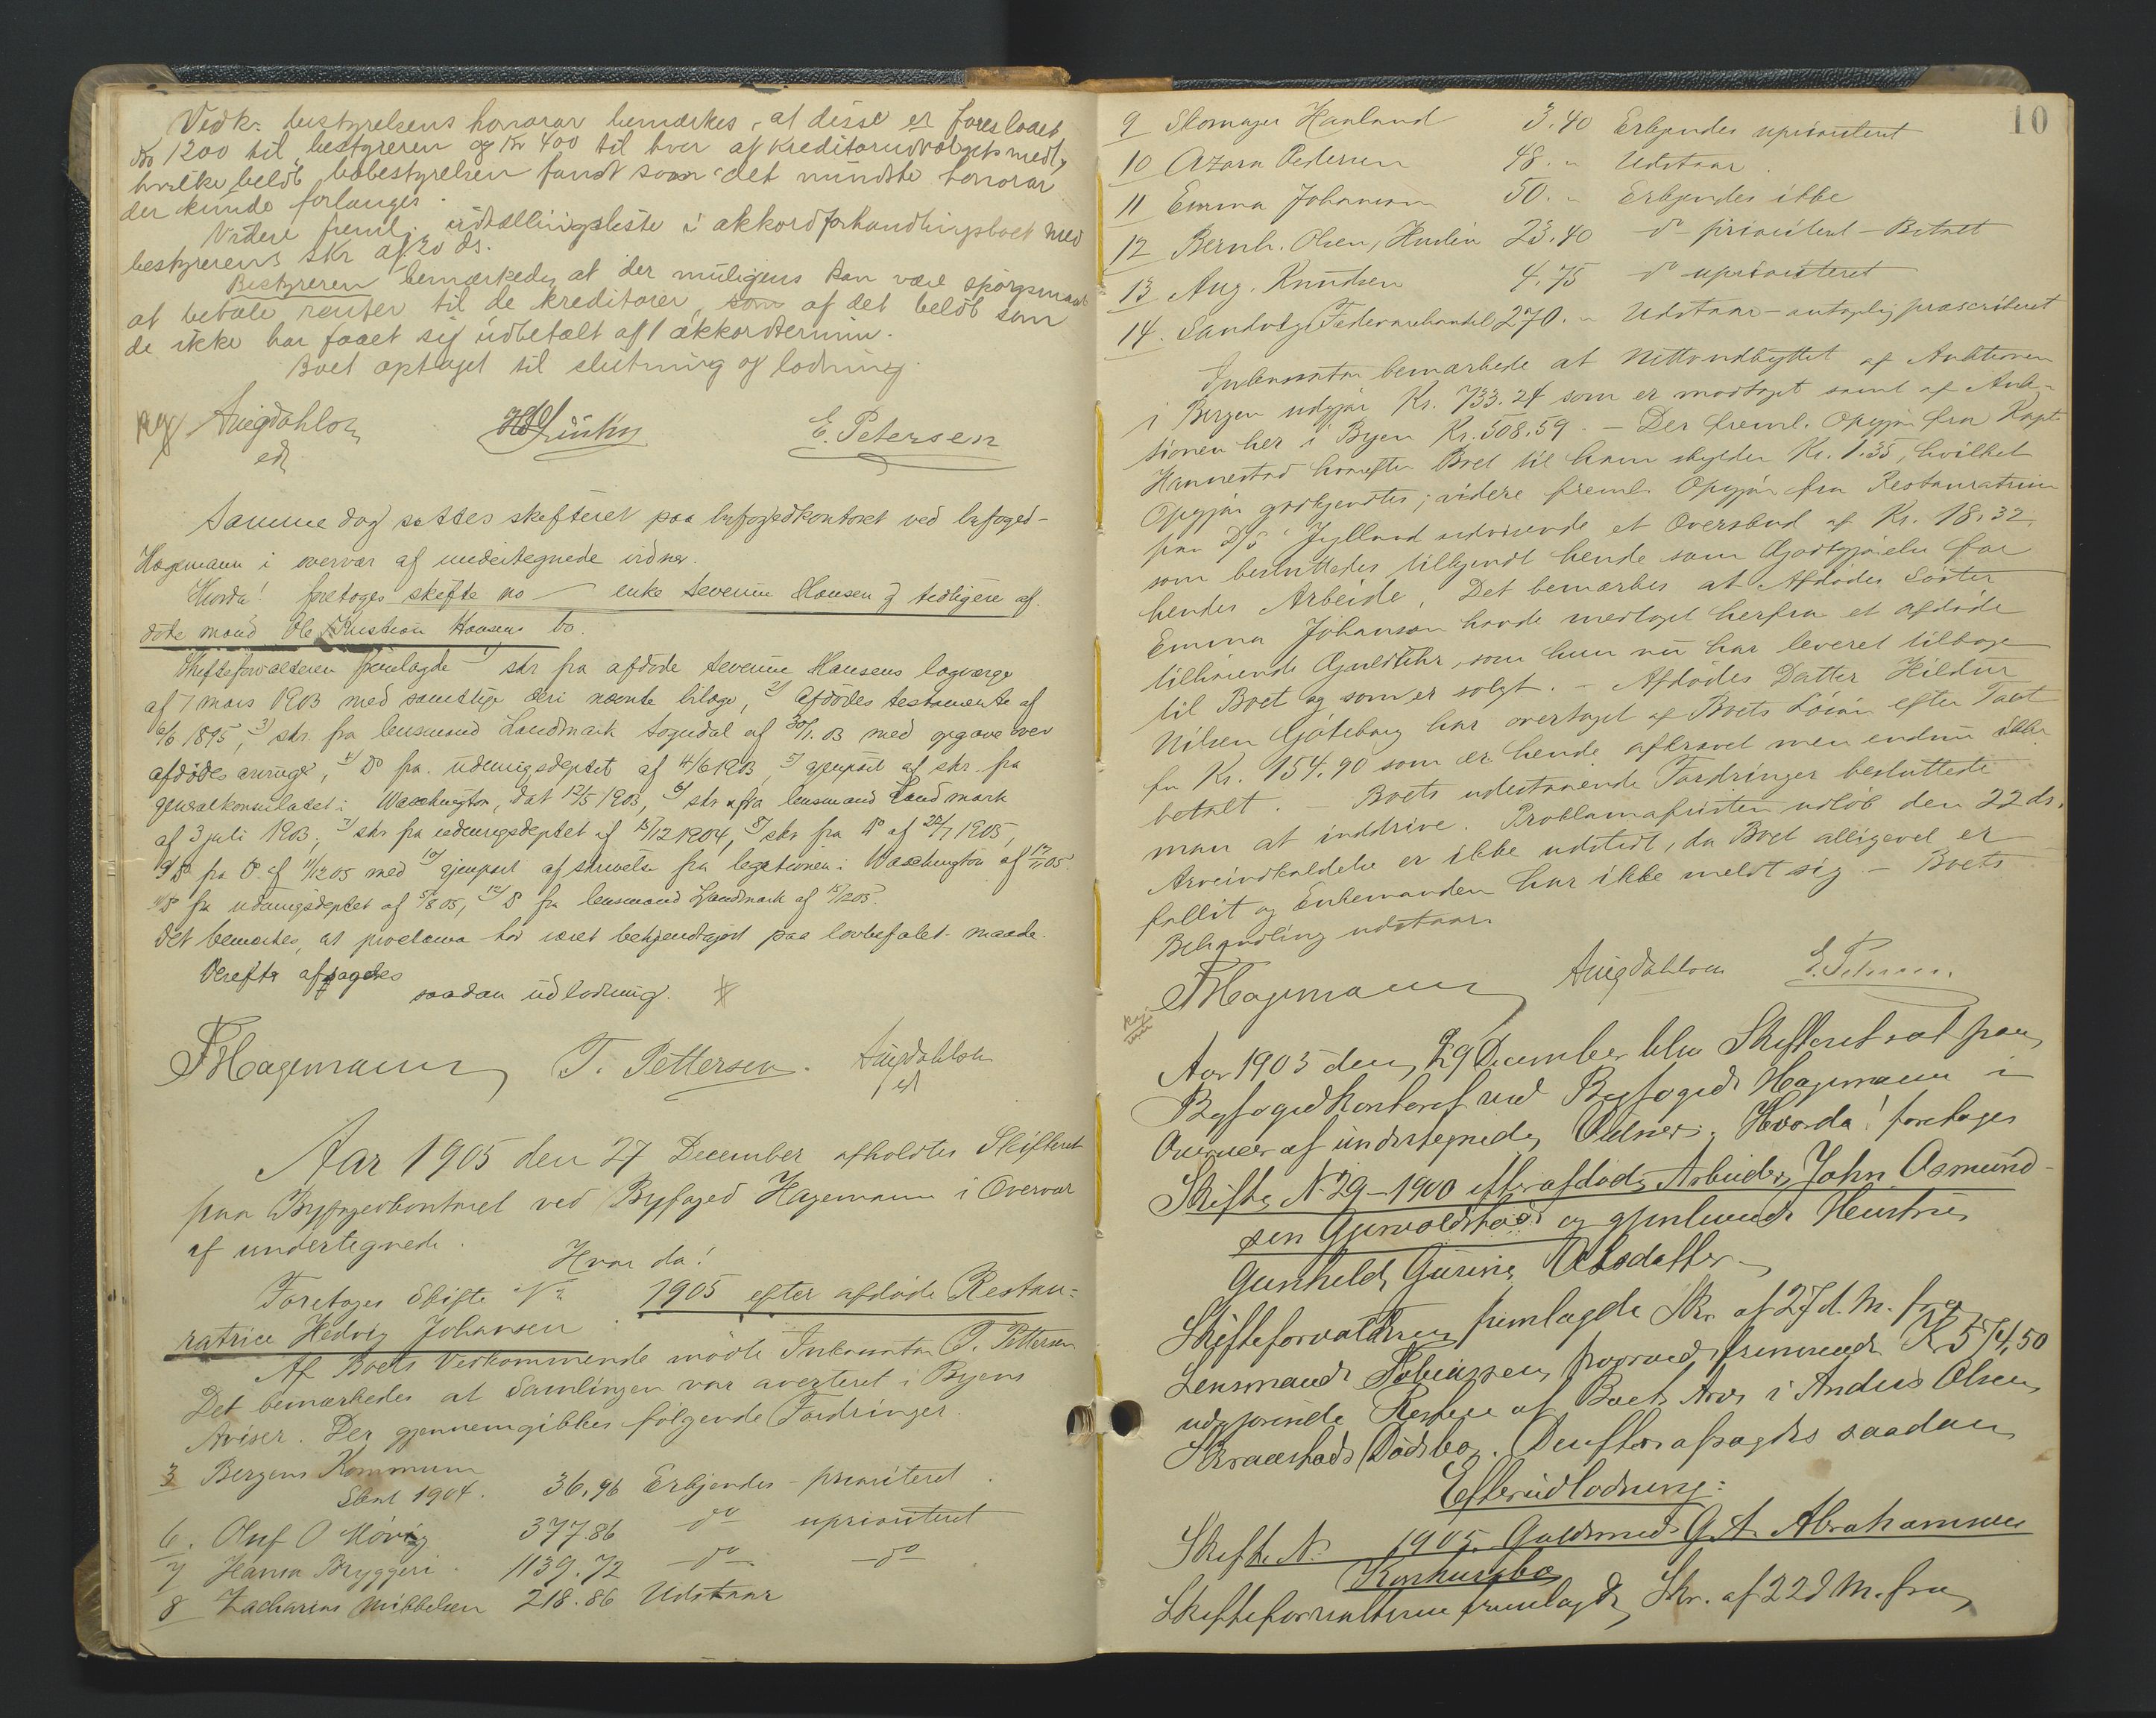 Vedk. bestyrelsens honorar bemærkes, at disse er foreslaaet
Kr 1200 til bestyreren og Kr 400 til hver af kreditorudvalgets medl,
hvilke beløb bobestyrelsen fandt som det mindste honorar
der kunde forlanges.
Videre freml. udtællingsliste i akkordforhandlingsboet med
bestyrerens skr af 20 ds.
Bestyreren bemærkede, at der muligens kan være spörgsmaal
at betale renter til de kreditorer, som af det beløb som
de ikke har faaet sig udbetalt af 1 akkordtermin.
Boet optaget til slutning og lodning.
E. Petersen
Samme dag sattes skifteret paa byfogedkontoret ved byfoged
Hagemann i overvær af undertegnede vidner.
Hvorda! foretoges skifte no — enke Severine Hansen & tidligere af-
döde mand Ole Kristian Hansens bo.
Skifteforvalteren fremlagde 1) skr fra afdöde Severine Hansens lagværge
af 7 mars 1903 med samtlige deri nævnte bilage, 2) afdödes testamente af
6/6 1895, 3) skr. fra lensmand Landmark Sogndal af 30/1. 03 med opgave over
afdödes arvinge, 4) Do fra udenrigsdeptet af 4/6 1903, 5) gjenpart af skr. fra
generalkonsulatet i Washington, dat 12/5 1903, 6) skr fra lensmand Landmark
af 3 juli 1903, 7) skr fra udenrigsdeptet af 15/12 1904, 8) skr fra Do af 24/7 1905,
9) Do fra Do af 11/12 05 med 10) gjenpart af skrivelse fra legationen i Washington af 17/11 05.
11) Do fra udenrigsdeptet af 5/8 05, 12) Do fra lensmand Landmark af 15/12 05.
Det bemærkes, at proclama har været bekjendtgjort paa lovbefalet maade.
Derefter afsagdes
saadan udlodning.
FHagemann T. Pettersen.
Aar 1905 den 27 December afholdtes Skifteret
paa Byfogedkontoret ved Byfoged Hagemann i Overvær
af undertegnede.
Hvor da!
Foretoges Skifte No 1905 efter afdöde Restau=
ratrice Hedvig Johansen
Af Boets Vedkommende mödte Inkassator T. Pettersen
Det bemærkedes at Samlingen var averteret i Byens
Aviser. Der gjennemgikkes fölgende Fordringer.
3 Bergens Kommune
Skat 1904. 36,96 Erkjendes - prioriteret.
6. Oluf O Mövig 377.86 do uprioriteret
7 Hansa Bryggeri. 1139.72 - do - - do -
8 Zacharias Mikkelsen 218.86 Udstaar
10
9 Skomager Haaland 3.40 Erkjendes uprioriteret
10 Azora Pedersen 48. " Udstaar.
11 Emma Johanson 50. " Erkjendes ikke
12 Bernh. Olsen, Huslin 23.40 do prioriteret - Betalt
13 Aug. Knudsen 4.75 do uprioriteret
14. Sandvigs Fedevarehandel 270. " Udstaar - antagelig præscriberet
Inkassator bemærkede at Nettoudbyttet af Auktionen
i Bergen udgjör Kr. 733.24 som er modtaget samt af Auk-
tionen her i Byen Kr. 508.59. - Der freml. Opgjör fra Kapt
Hannestad hvorefter Boet til ham skylder Kr. 1.35, hvilket
Opgjör godkjendtes; videre freml. Opgjör fra Restauratrice
paa D/S "Jylland udvisende et Overskud af Kr. 18.32,
som besluttedes tilkjendt hende som Godtgjörelse for
hendes Arbeide. Det bemærkes at Afdödes Söster
Emma Johanson havde medtaget herfra et afdöde
tilhörende Gulduhr, som hun nu har leveret tilbage
til Boet og som er solgt. - Afdödes Datter Hildur
Nilsen Göteborg har overtaget af Boets Lösöre efter Taxt
for Kr. 154.90 som er hende afkrævet men endnu ikke
betalt. - Boets udestaaende Fordringer besluttede
man at inddrive. Proklamafristen udlöb den 22 ds.
Arveindkaldelse er ikke udstedt, da Boet alligevel er
fallit og Enkemanden har ikke meldt sig - Boets
Behandling udstaar.
FHagemann E. Petersen
Aar 1905 den 29 December blev Skifteret sat paa
Byfogedkontoret ved Byfoged Hagemann i
Overvær af undertegnede Vidner. Hvorda! foretoges
Skifte No 29-1900 efter afdöde Arbeider John Osmund-
sen Gjervoldstad og gjenlevende Hustru
Gunhild Gurine Olsdatter
Skifteforvalteren fremlagde Skr. af 27 d. M. fra
Lensmand Tobiassen hvorved fremsendes Kr 574,50
udgjörende Resten af Boets Arv i Anders Olsen
Braastads Dödsbo. Derefter afsagdes saadan
Efterudlodning:
Skifte No 1905. Guldsmed G. A. Abrahamsens
Konkursbo
Skifteforvalteren fremlagde Skr. af 22 d M. fra